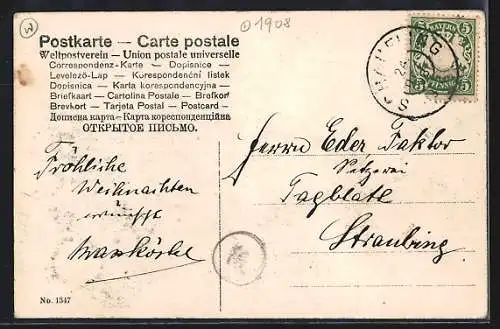 1908
Postkarte — Carte postale
Weltpostverein — Union postale universelle
Correspondenz-Karte — Dopisnice
Levelező-Lap — Kurespondenční lístek
Dopisnica — Karta korespondencyjna
Briefkaart — Cartolina Postale — Brefkort
Brevkort — Tarjeta Postal — Postcard —
Дописна карта — Карта кореспонденційна
ОТКРЫТОЕ ПИСЬМО.
BAYERN
5 5
PFENNIG
Fröhliche
Weihnachten
erwünscht
Herrn Eder Faktor
Setzerei
Tagblatt
Straubing
No. 1347